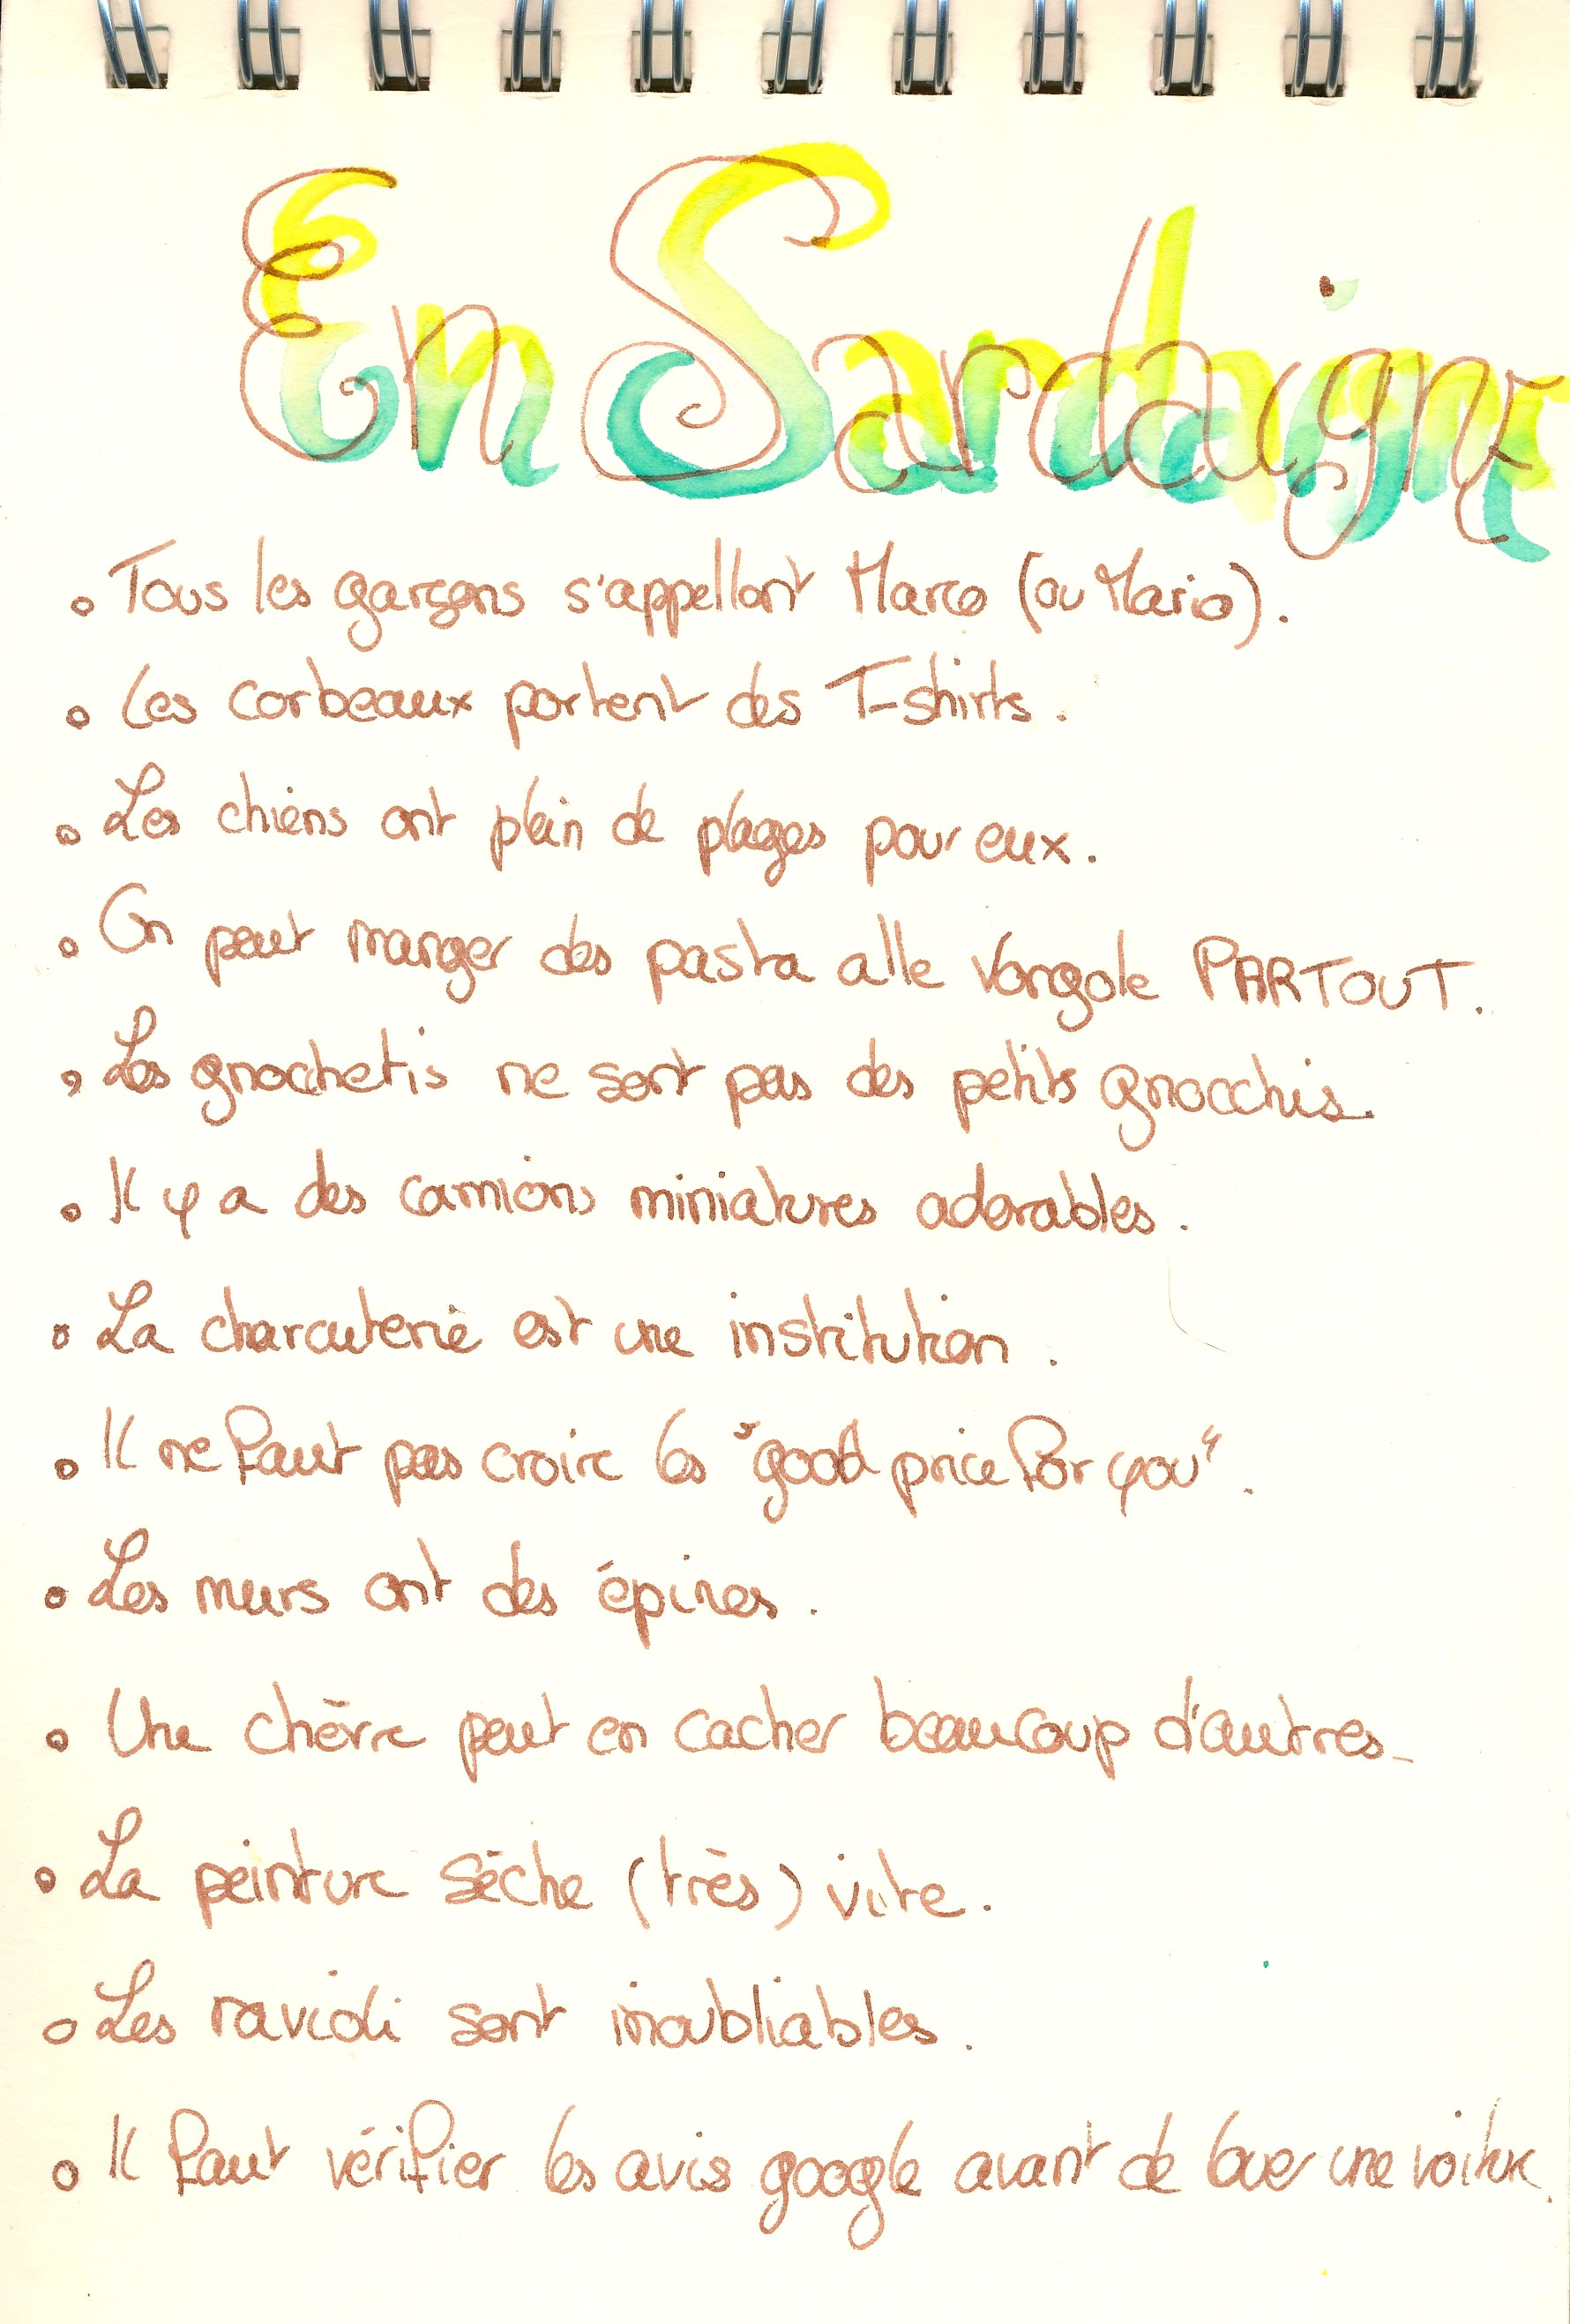 En Sardaigne
Tous les garçons s'appellont Marco (ou Mario).
Les corbeaux portent des T-shirts.
Les chiens ont plein de plages pour eux.
On peut manger des pasta alle vongole PARTOUT.
Les gnochetis ne sont pas des petits gnocchis.
Il y a des camions miniatures adorables.
La charcuterie est une institution.
Il ne faut pas croire les "good price for you".
Les murs ont des épines.
Une chèvre peut en cacher beaucoup d'autres.
La peinture sèche (très) vite.
Les ravioli sont inoubliables.
Il faut vérifier les avis google avant de louer une voiture.